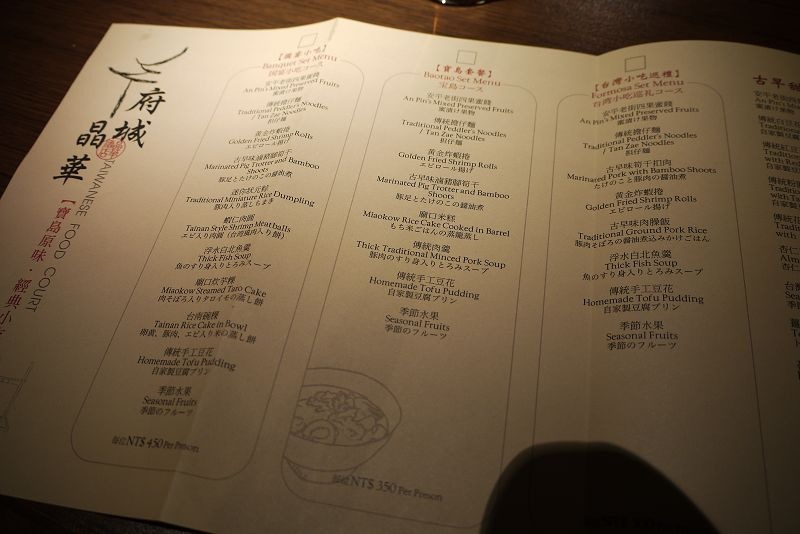 府城
晶華
TAIWANESE FOOD COURT
【寶島原味・經典小
【國宴小吃】
Banquet Set Menu
国宴小吃コース
安平老街四果蜜餞
An Pin's Mixed Preserved Fruits
蜜漬け果物
傳統擔仔麵
Traditional Peddler's Noodles
/ Tan Zae Noodles
担仔麵
黃金炸蝦捲
Golden Fried Shrimp Rolls
エビロール揚げ
古早味滷豬腳筍干
Marinated Pig Trotter and Bamboo
Shoots
豚足とたけのこの醤油煮
迷你狀元粽
Traditional Miniature Rice Dumpling
豚肉入り蒸しちまき
蝦仁肉圓
Tainan Style Shrimp Meatballs
エビ入り肉圓（台湾風肉入り餅）
浮水白北魚羹
Thick Fish Soup
魚のすり身入りとろみスープ
廟口炊芋粿
Miaokow Steamed Taro Cake
肉そぼろ入りタロイモの蒸し餅
台南碗粿
Tainan Rice Cake in Bowl
卵黄、豚肉、エビ入り米の蒸し餅
傳統手工豆花
Homemade Tofu Pudding
自家製豆腐プリン
季節水果
Seasonal Fruits
季節のフルーツ
每位NT$ 450 Per Person
【寶島套餐】
Baotao Set Menu
宝島コース
安平老街四果蜜餞
An Pin's Mixed Preserved Fruits
蜜漬け果物
傳統擔仔麵
Traditional Peddler's Noodles
/ Tan Zae Noodles
担仔麵
黃金炸蝦捲
Golden Fried Shrimp Rolls
エビロール揚げ
古早味滷豬腳筍干
Marinated Pig Trotter and Bamboo
Shoots
豚足とたけのこの醤油煮
廟口米糕
Miaokow Rice Cake Cooked in Barrel
もち米ごはんの蒸籠蒸し
傳統肉羹
Thick Traditional Minced Pork Soup
豚肉のすり身入りとろみスープ
傳統手工豆花
Homemade Tofu Pudding
自家製豆腐プリン
季節水果
Seasonal Fruits
季節のフルーツ
每位NT$ 350 Per Person
【台灣小吃巡禮】
Formosa Set Menu
台湾小吃巡礼コース
安平老街四果蜜餞
An Pin's Mixed Preserved Fruits
蜜漬け果物
傳統擔仔麵
Traditional Peddler's Noodles
/ Tan Zae Noodles
担仔麵
古早味筍干扣肉
Marinated Pork with Bamboo Shoots
たけのこと豚肉の醤油煮
黃金炸蝦捲
Golden Fried Shrimp Rolls
エビロール揚げ
古早味肉臊飯
Traditional Ground Pork Rice
豚肉そぼろの醤油煮込みかけごはん
浮水白北魚羹
Thick Fish Soup
魚のすり身入りとろみスープ
傳統手工豆花
Homemade Tofu Pudding
自家製豆腐プリン
季節水果
Seasonal Fruits
季節のフルーツ
古早